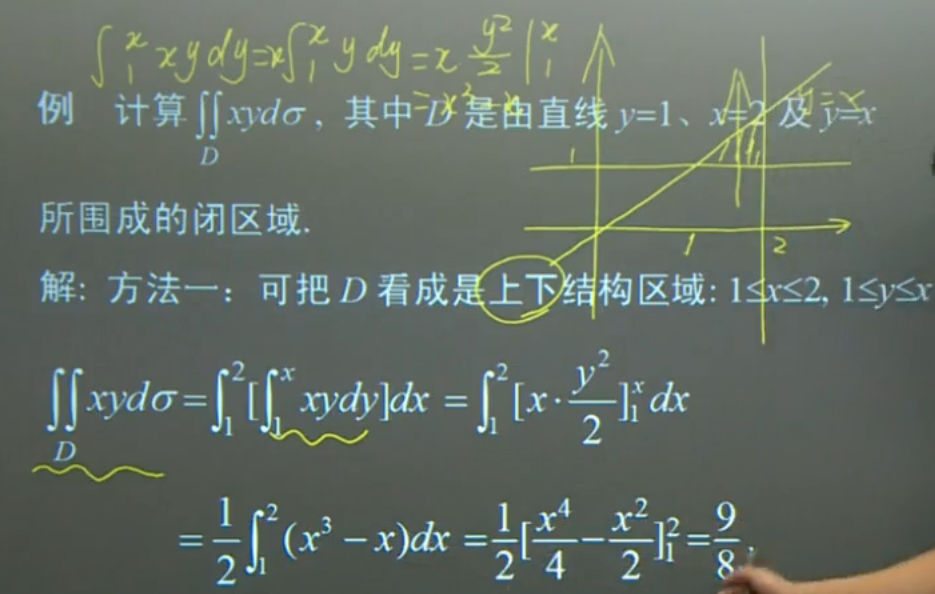 ∫₁ˣ xy dy = x∫₁ˣ y dy = x y²/2 |₁ˣ
= x³ - x
例 计算∬_D xydσ, 其中 D 是由直线 y=1、x=2 及 y=x
y=x
1
所围成的闭区域.
1 2
解: 方法一: 可把 D 看成是上下结构区域: 1≤x≤2, 1≤y≤x
∬_D xydσ = ∫₁²[∫₁ˣ xydy]dx = ∫₁²[x·y²/2]₁ˣ dx
= 1/2 ∫₁²(x³ − x)dx = 1/2[x⁴/4 − x²/2]₁² = 9/8.